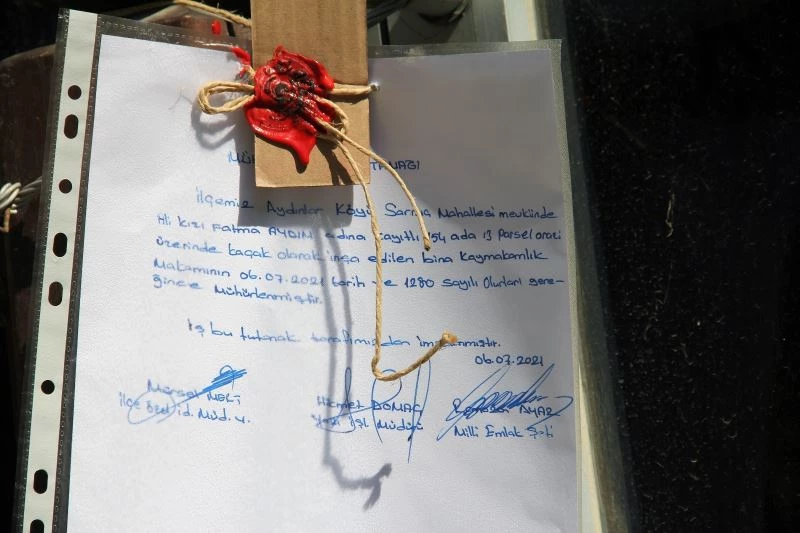 TANAĞI
İlçemiz Aydınlar Köyü Sarma Mahallesi mevkiinde
Ali kızı Fatma AYDIN adına kayıtlı 154 ada 13 Parsel arazi
üzerinde kaçak olarak inşa edilen bina Kaymakamlık
Makamının 06.07.2021 tarih ve 1280 sayılı Olurları gere-
ğince Mühürlenmiştir.
İş bu tutanak tarafımızdan imzalanmıştır.
06.07.2021
Mürsel MERT Hikmet DOMAÇ AYAZ
İlçe Özel id. Müd. V. Yazı İşl. Müdürü Milli Emlak Şefi